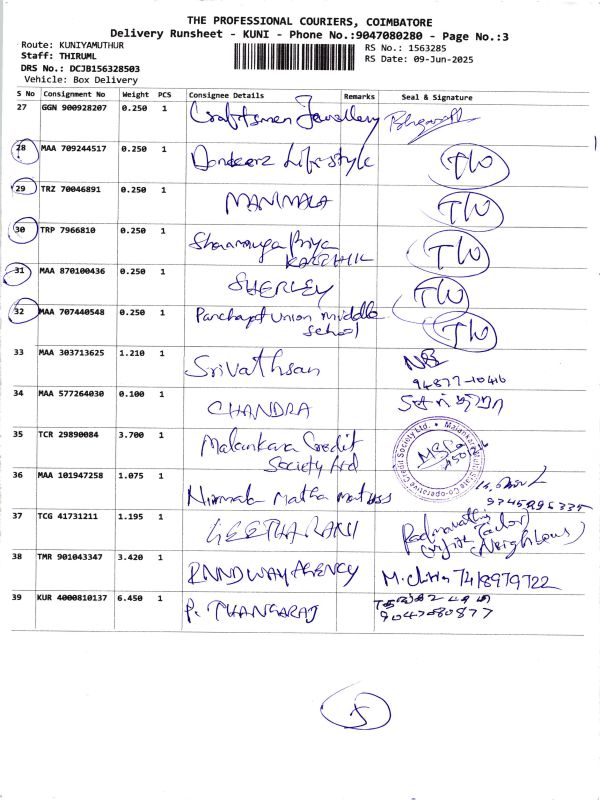 THE PROFESSIONAL COURIERS, COIMBATORE
Delivery Runsheet - KUNI - Phone No.:9047080280 - Page No.:3
Route: KUNIYAMUTHUR
Staff: THIRUML
DRS No.: DCJB156328503
Vehicle: Box Delivery
RS No.: 1563285
RS Date: 09-Jun-2025
S No Consignment No Weight PCS Consignee Details Remarks Seal & Signature
27 GGN 900928207 0.250 1 Craftsmen Jewellery
28 MAA 709244517 0.250 1 Lifestyle T10
29 TRZ 70046891 0.250 1 MANIMALA T10
30 TRP 7966810 0.250 1 Shanmuga Priya T10
KARTHIK
31 MAA 870100436 0.250 1 SHERLEY T10
32 MAA 707440548 0.250 1 Panchayt Union middle T10
School
33 MAA 303713625 1.210 1 Srivathsan
94877-10416
34 MAA 577264030 0.100 1 CHANDRA
35 TCR 29890084 3.700 1 Malankara Credit
Society Ltd
36 MAA 101947258 1.075 1 Nirmala Matha
37 TCG 41731211 1.195 1 GEETHA RANI
(Neighbour)
38 TMR 901043347 3.420 1 AGENCY 7418979722
39 KUR 4000810137 6.450 1 P. THANGARAJ
9047080877
5